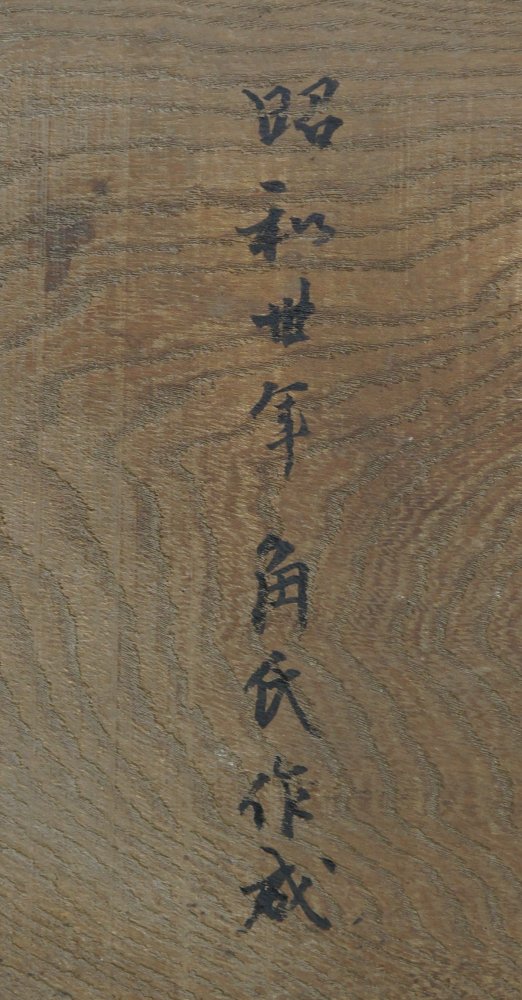 昭和卅年角氏作成